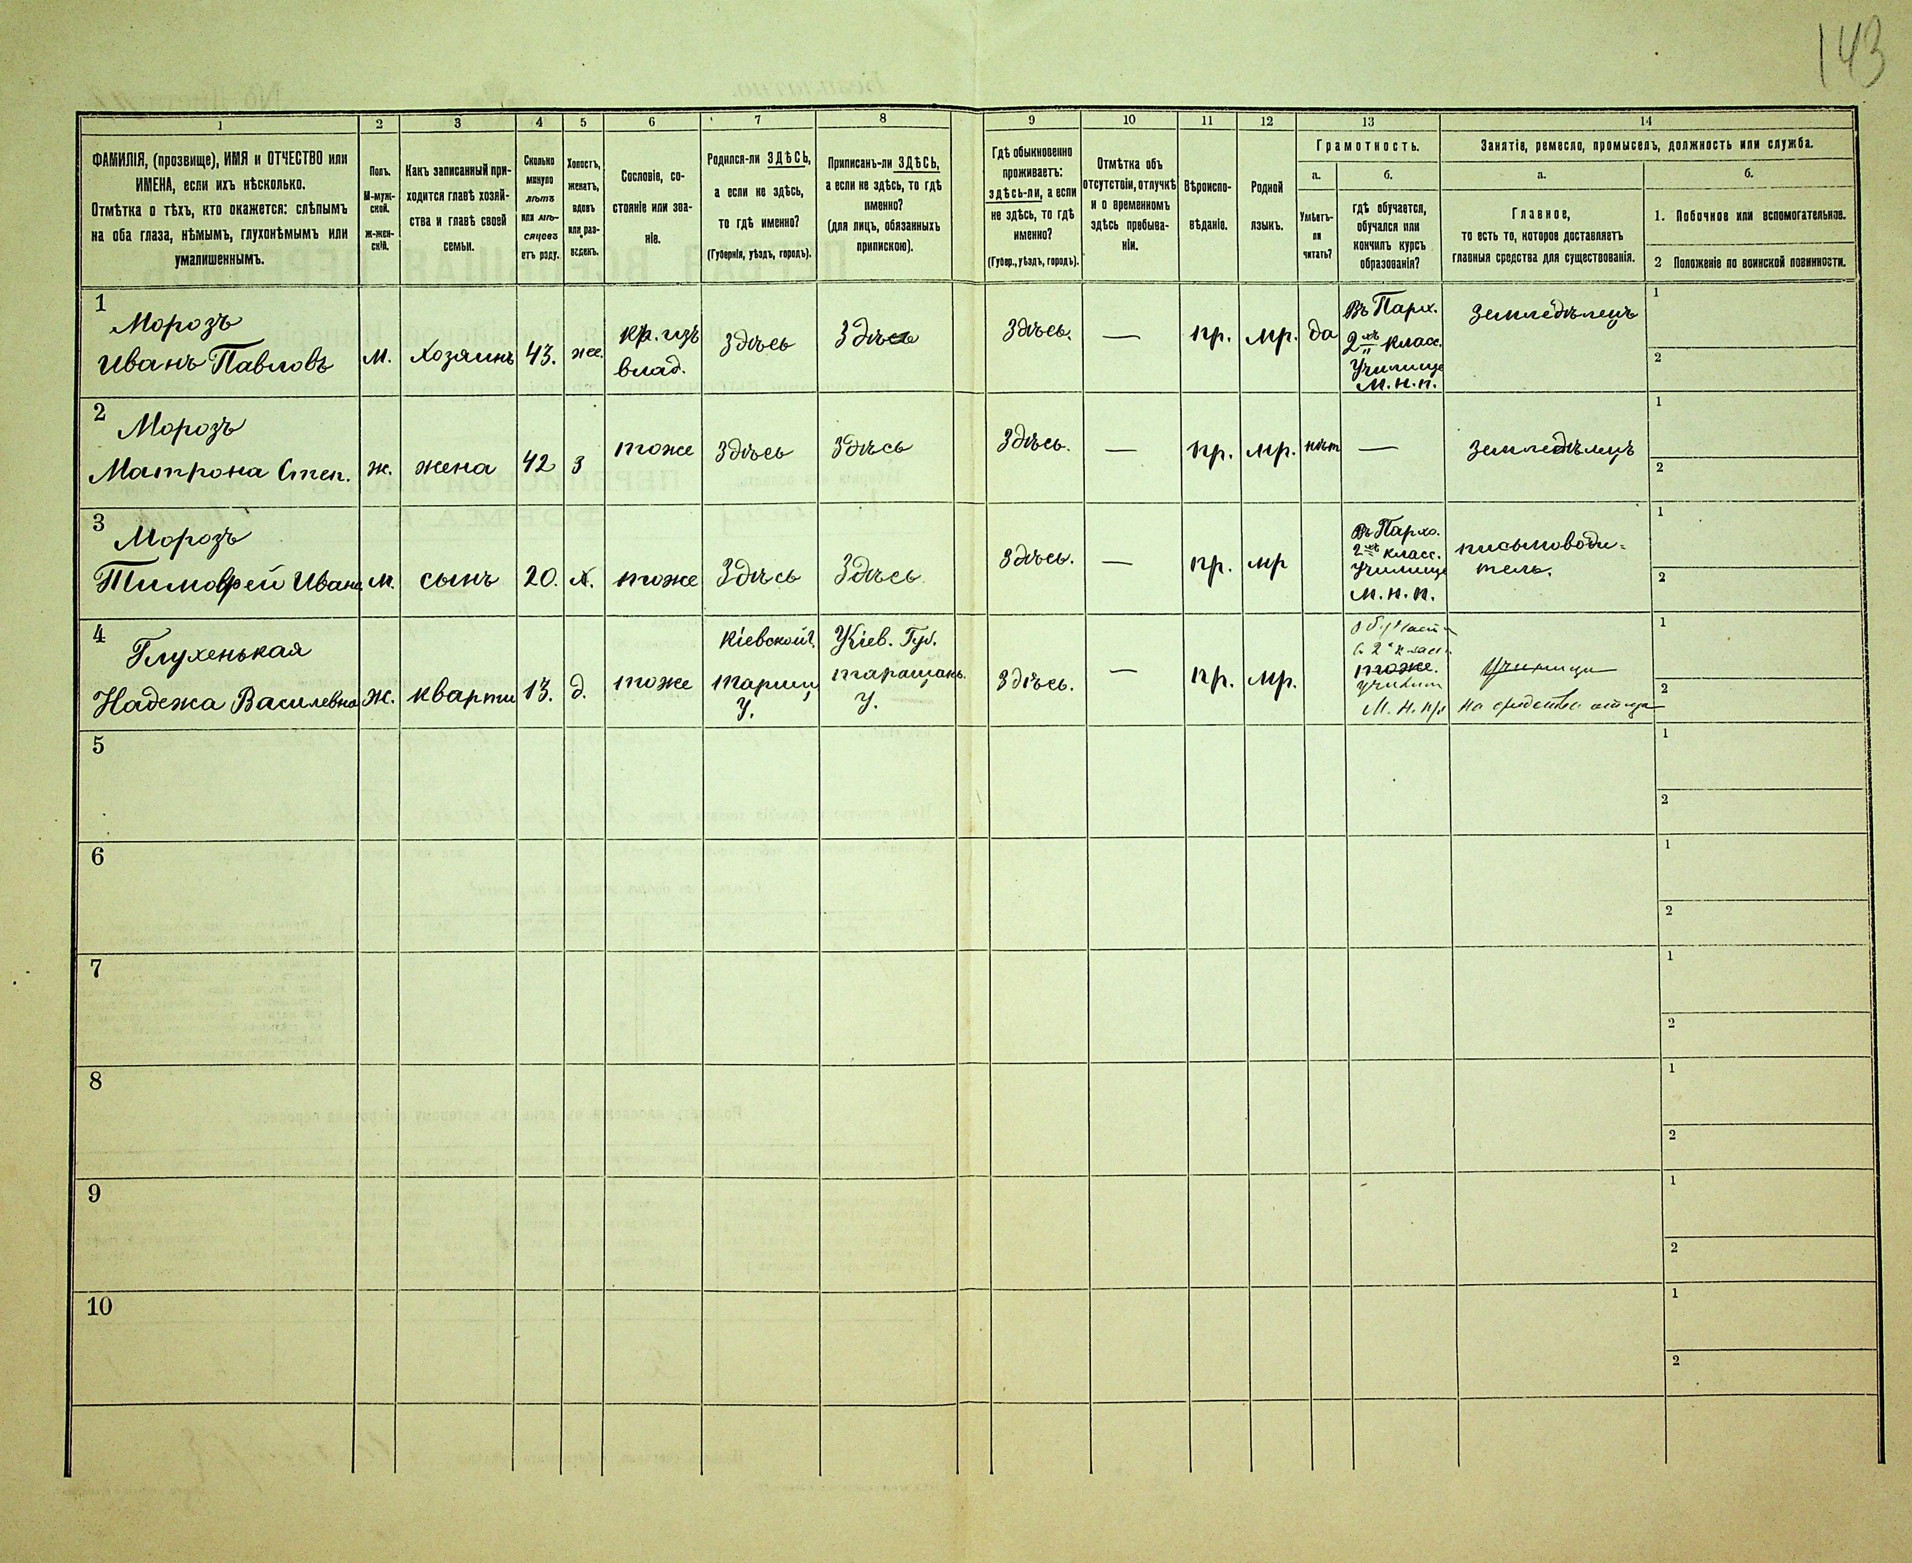 143
1
2
3
4
5
6
7
8
9
10
11
12
13
14
ФАМИЛІЯ, (прозвище), ИМЯ и ОТЧЕСТВО или
ИМЕНА, если ихъ нѣсколько.
Отмѣтка о тѣхъ, кто окажется: слѣпымъ
на оба глаза, нѣмымъ, глухонѣмымъ или
умалишеннымъ.
Полъ.
М-муж-
ской.
ж-жен-
скій.
Какъ записанный при-
ходится главѣ хозяй-
ства и главѣ своей
семьи.
Сколько
минуло
лѣтъ
или мѣ-
сяцевъ
отъ роду.
Холостъ,
женатъ,
вдовъ
или раз-
веденъ.
Сословіе, со-
стояніе или зва-
ніе.
Родился-ли ЗДѢСЬ,
а если не здѣсь,
то гдѣ именно?
(Губернія, уѣздъ, городъ).
Приписанъ-ли ЗДѢСЬ,
а если не здѣсь, то гдѣ
именно?
(для лицъ, обязанныхъ
припискою).
Гдѣ обыкновенно
проживаетъ:
здѣсь-ли, а если
не здѣсь, то гдѣ
именно?
(Губер., уѣздъ, городъ).
Отмѣтка объ
отсутствіи, отлучкѣ
и о временномъ
здѣсь пребыва-
ніи.
Вѣроиспо-
вѣданіе.
Родной
языкъ.
Грамотность.
а.
б.
Умѣетъ-
ли
читать?
гдѣ обучается,
обучался или
кончилъ курсъ
образованія?
Занятіе, ремесло, промыселъ, должность или служба.
а.
б.
Главное,
то есть то, которое доставляетъ
главныя средства для существованія.
1. Побочное или вспомогательное.
2 Положеніе по воинской повинности.
1
Морозъ
Иванъ Павловъ
м.
хозяинъ
43.
же.
кр. изъ
влад.
Здѣсь
Здѣсь
Здѣсь.
—
пр.
мр.
да
Въ Парх.
2хъ класс.
Училище
М. н. п.
Земледѣлецъ
1
2
2
Морозъ
Матрона Степ.
ж.
жена
42
з
тоже
Здѣсь
Здѣсь
Здѣсь.
—
пр.
мр.
нѣт
—
Земледѣлецъ
1
2
3
Морозъ
Тимофей Ивано
м.
сынъ
20.
х.
тоже
Здѣсь
Здѣсь
Здѣсь.
—
пр.
мр
Въ Пархо.
2хъ класс.
Училище
М. н. п.
письмоводи-
тель.
1
2
4
Глухенькая
Надежа Василевна
ж.
кварти
13.
д.
тоже
Кіевской г.
у.
Кіев. Губ.
таращанс.
у.
Здѣсь.
—
пр.
мр.
тоже.
М. н. пр
на средства отца
1
2
5
1
2
6
1
2
7
1
2
8
1
2
9
1
2
10
1
2